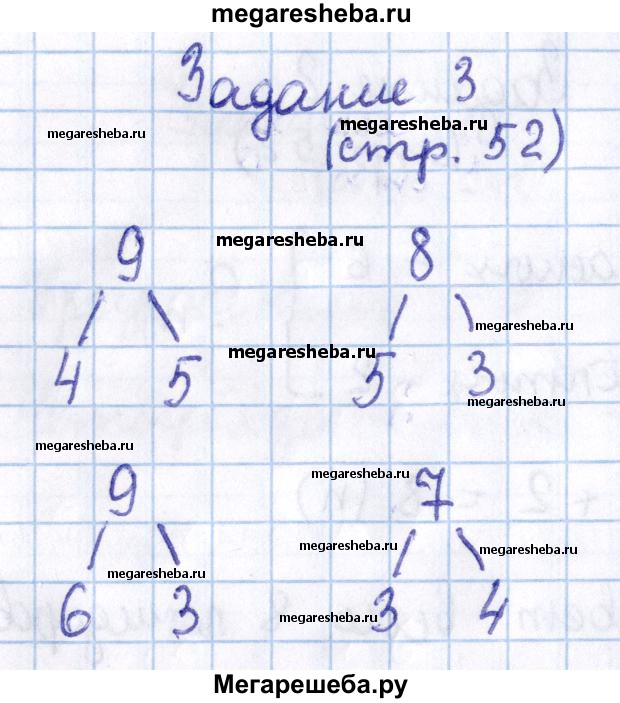 megaresheba.ru
Задание 3
megaresheba.ru
megaresheba.ru
(стр. 52)
9 megaresheba.ru 8
megaresheba.ru
megaresheba.ru
4 5 5 3
megaresheba.ru
megaresheba.ru
9 megaresheba.ru 7
megaresheba.ru megaresheba.ru
megaresheba.ru
6 3 megaresheba.ru 3 4
Мегарешеба.ру